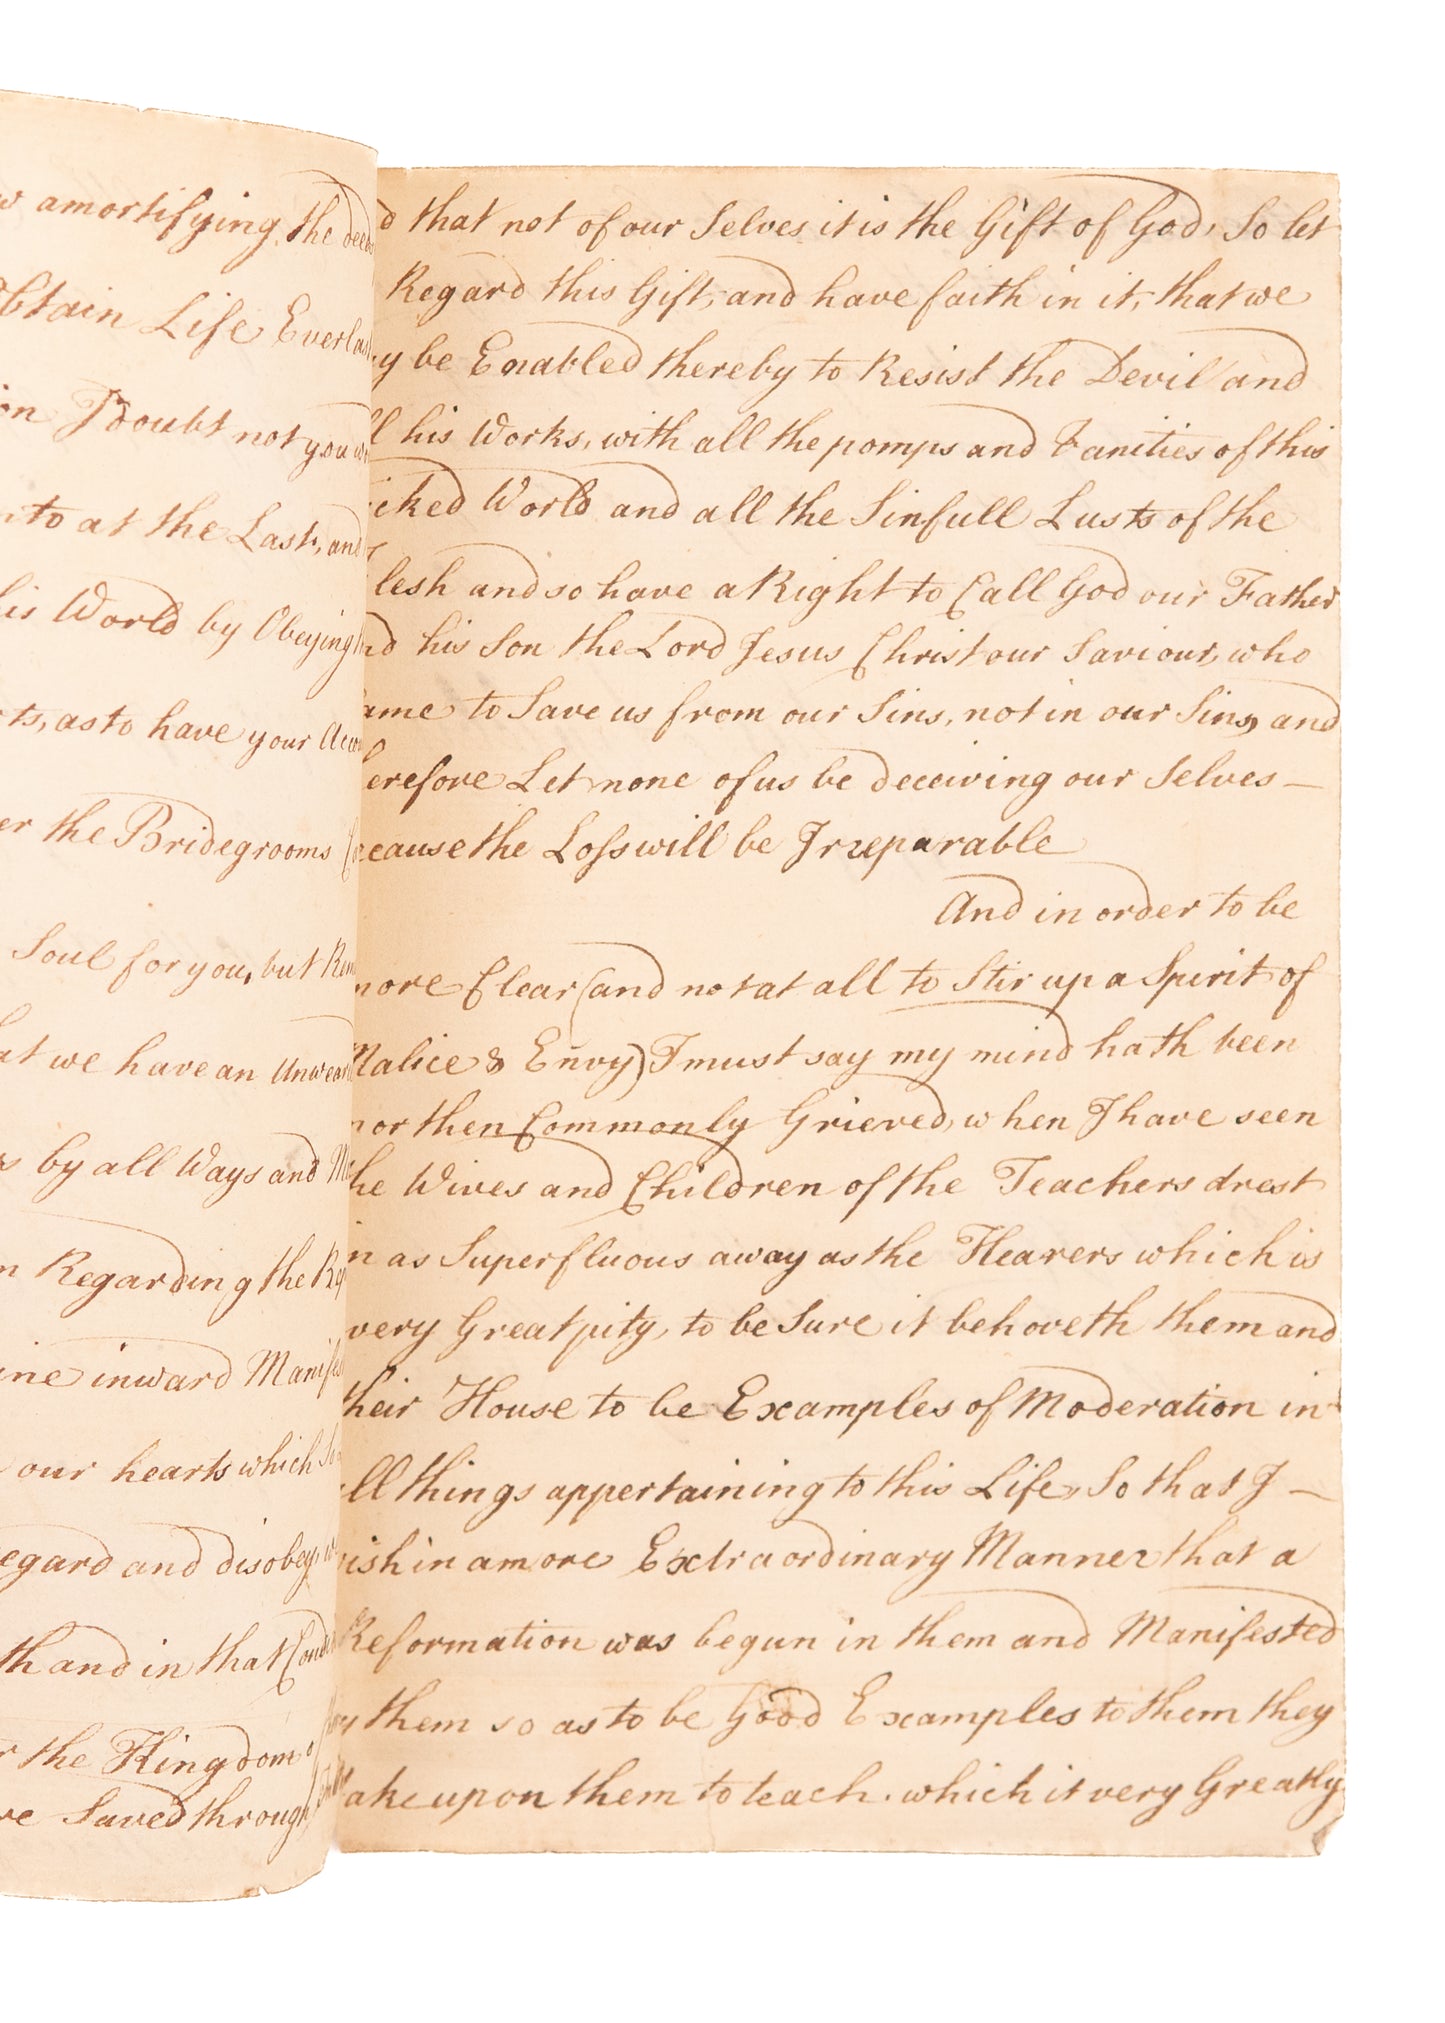 amortifying the
Obtain Life
I doubt not you
to at the Last, and
his World by Obeying
as to have your
the Bridegrooms
Soul for you, but
we have an
by all Ways and
Regarding the
inward
our hearts which
and disobey
and in that
the Kingdom
Saved through
that not of our Selves it is the Gift of God, So let
Regard this Gift, and have faith in it, that we
be Enabled thereby to Resist the Devil and
his Works, with all the pomps and Vanities of this
World and all the Sinfull Lusts of the
lesh and so have a Right to Call God our Father
his Son the Lord Jesus Christ our Saviour, who
ame to Save us from our Sins, not in our Sins, and
erefore Let none of us be deceiving our Selves —
ecause the Loss will be Irreparable
And in order to be
more Clear (and not at all to Stir up a Spirit of
Malice & Envy) I must say my mind hath been
mor then Commonly Grieved, when I have seen
he Wives and Children of the Teachers drest
in as Superfluous away as the Hearers which is
very Great pity, to be Sure it behoveth them and
their House to be Examples of Moderation in
all things appertaining to this Life, So that I —
ish in a more Extraordinary Manner that a
Reformation was begun in them and Manifested
by them so as to be Good Examples to them they
ake upon them to teach. which it very Greatly